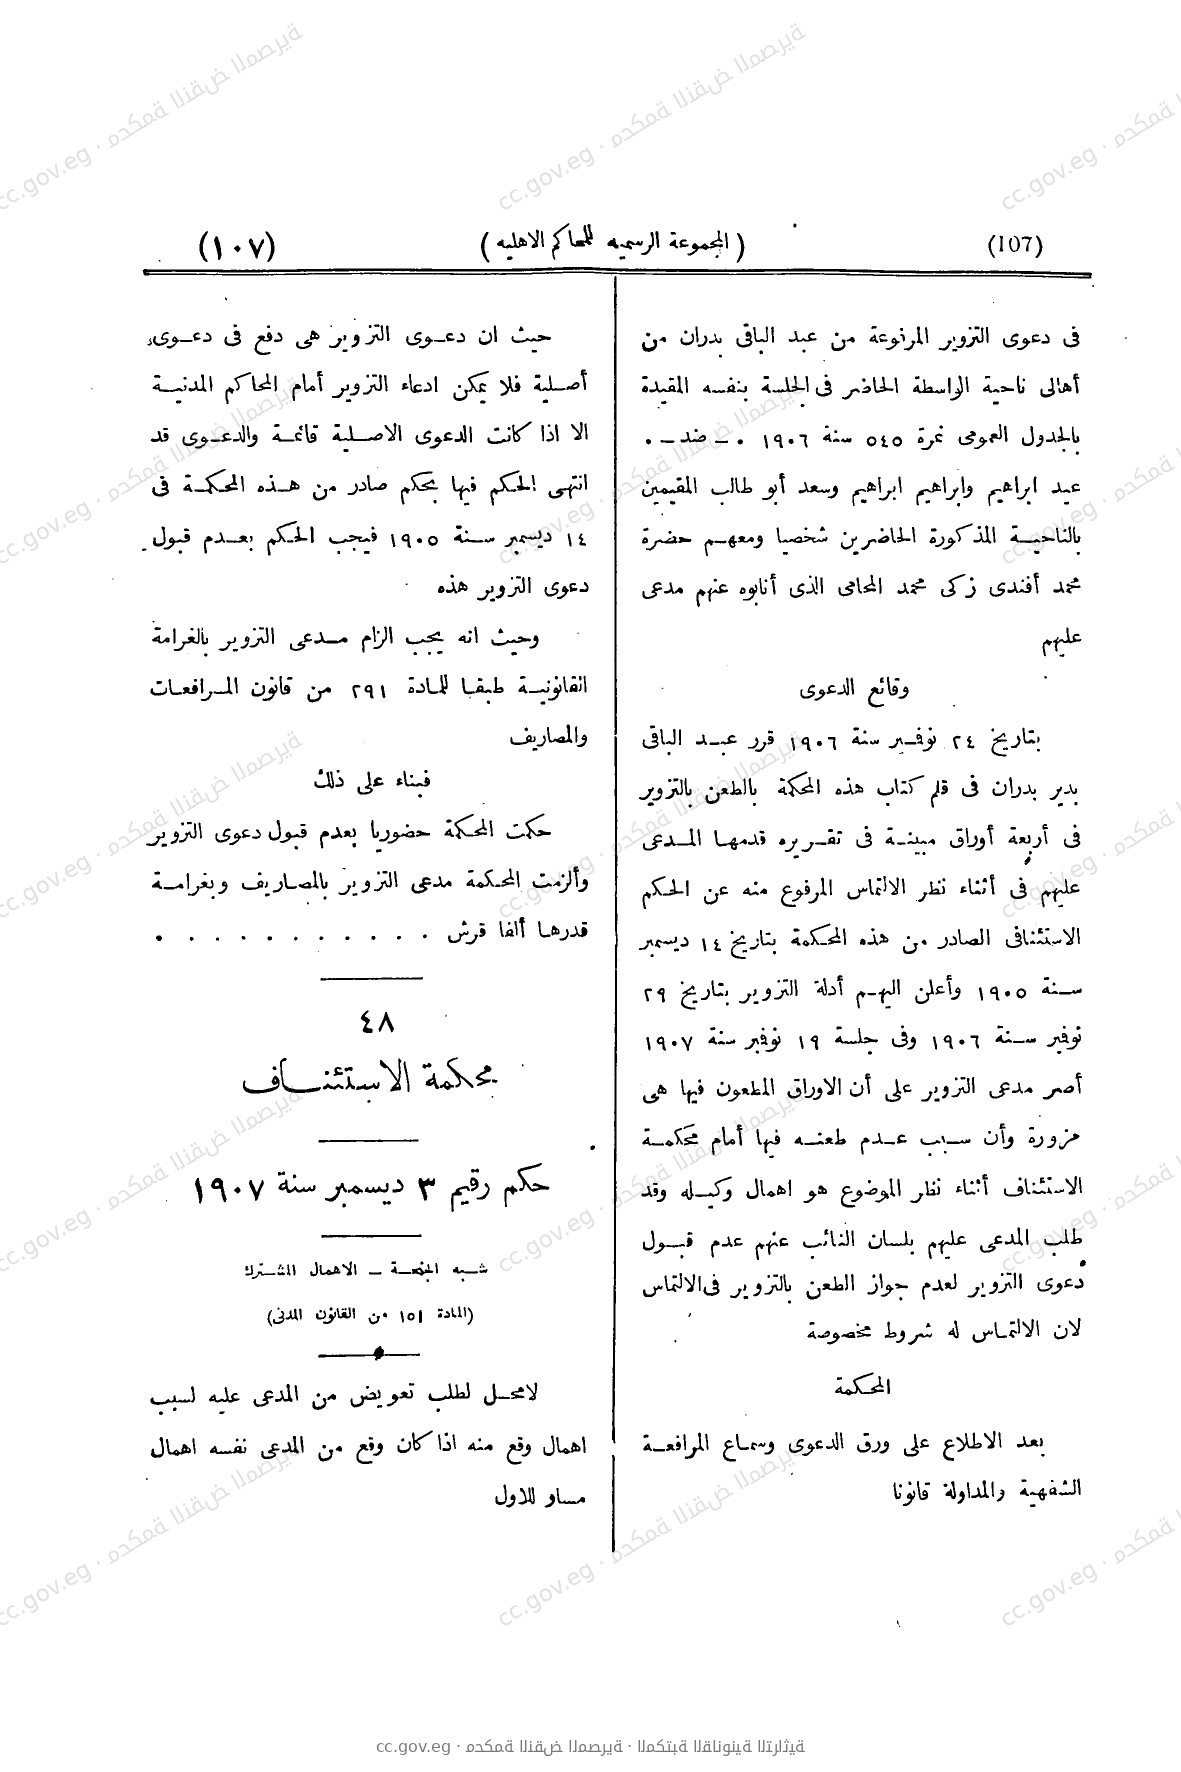 (107) (المجموعة الرسميه للمحاكم الاهليه) (١٠٧)
فى دعوى التزوير المرفوعة من عبد الباقى بدران من
أهالى ناحية الواسطة الحاضر فى الجلسة بنفسه المقيدة
بالجدول العمومى نمرة ٥٤٥ سنة ١٩٠٦ ٠ــ ضد ــ٠
عيد ابراهيم وابراهيم ابراهيم وسعد أبو طالب المقيمين
بالناحيــة المذكورة الحاضرين شخصيا ومعهــم حضرة
محمد أفندى زكى محمد المحامى الذى أنابوه عنهم مدعى
عليهم
وقائع الدعوى
بتاريخ ٢٤ نوفمبر سنة ١٩٠٦ قرر عبــد الباقى
بدير بدران فى قلم كتاب هذه المحكمة بالطعن بالتزوير
فى أربعة أوراق مبينــة فى تقــريره قدمهـا المــدعى
عليهم فى أثناء نظر الالتماس المرفوع منه عن الحكم
الاستئنافى الصادر من هذه المحكمة بتاريخ ١٤ ديسمبر
ســنة ١٩٠٥ وأعلن اليهــم أدلة التزوير بتاريخ ٢٩
نوفمبر ســنة ١٩٠٦ وفى جلسة ١٩ نوفمبر سنة ١٩٠٧
أصر مدعى التزوير على أن الاوراق المطعون فيها هى
مزورة وأن ســبب عــدم طعنــه فيها أمام محكمــة
الاستئناف أثناء نظر الموضوع هو اهمال وكيــله وقد
طلب المدعى عليهم بلسان النائب عنهم عدم قبــول
دعوى التزوير لعدم جواز الطعن بالتزوير فى الالتماس
لان الالتمـاس له شروط مخصوصة
المحكمة
بعد الاطلاع على ورق الدعوى وسمـاع المرافعــة
الشفهية والمداولة قانونا
حيث ان دعــوى التزوير هى دفع فى دعــوى
أصــلية فلا يمكن ادعاء التزوير أمام المحاكم المدنيــة
الا اذا كانت الدعوى الاصــلية قائمــة والدعــوى قد
انتهى الحكم فيها بحكم صادر من هــذه المحكمــة فى
١٤ ديسمبر ســنة ١٩٠٥ فيجب الحكم بعــدم قبول
دعوى التزوير هذه
وحيث انه يجب الزام مــدعى التزوير بالغرامة
القانونيــة طبقـا للمادة ٢٩١ من قانون المــرافعـات
والمصاريف
فبناء على ذلك
حكمت المحكمة حضوريا بعدم قبول دعوى التزوير
وألزمت المحكمة مدعى التزوير بالمصـاريف وبغرامــة
قدرهـا ألفا قرش . . . . . . . . . . .
٤٨
محكمة الاستئنــاف
حكم رقيم ٣ ديسمبر سنة ١٩٠٧
شــبه الجنحــة ــ الاهمال المشــترك
(المادة ١٥١ من القانون المدنى)
لامحــل لطلب تعويض من المدعى عليه لسبب
اهمال وقع منه اذا كان وقع من المدعى نفسه اهمال
مساو للاول
cc.gov.eg · محكمة النقض المصرية · المكتبة القانونية التراثية